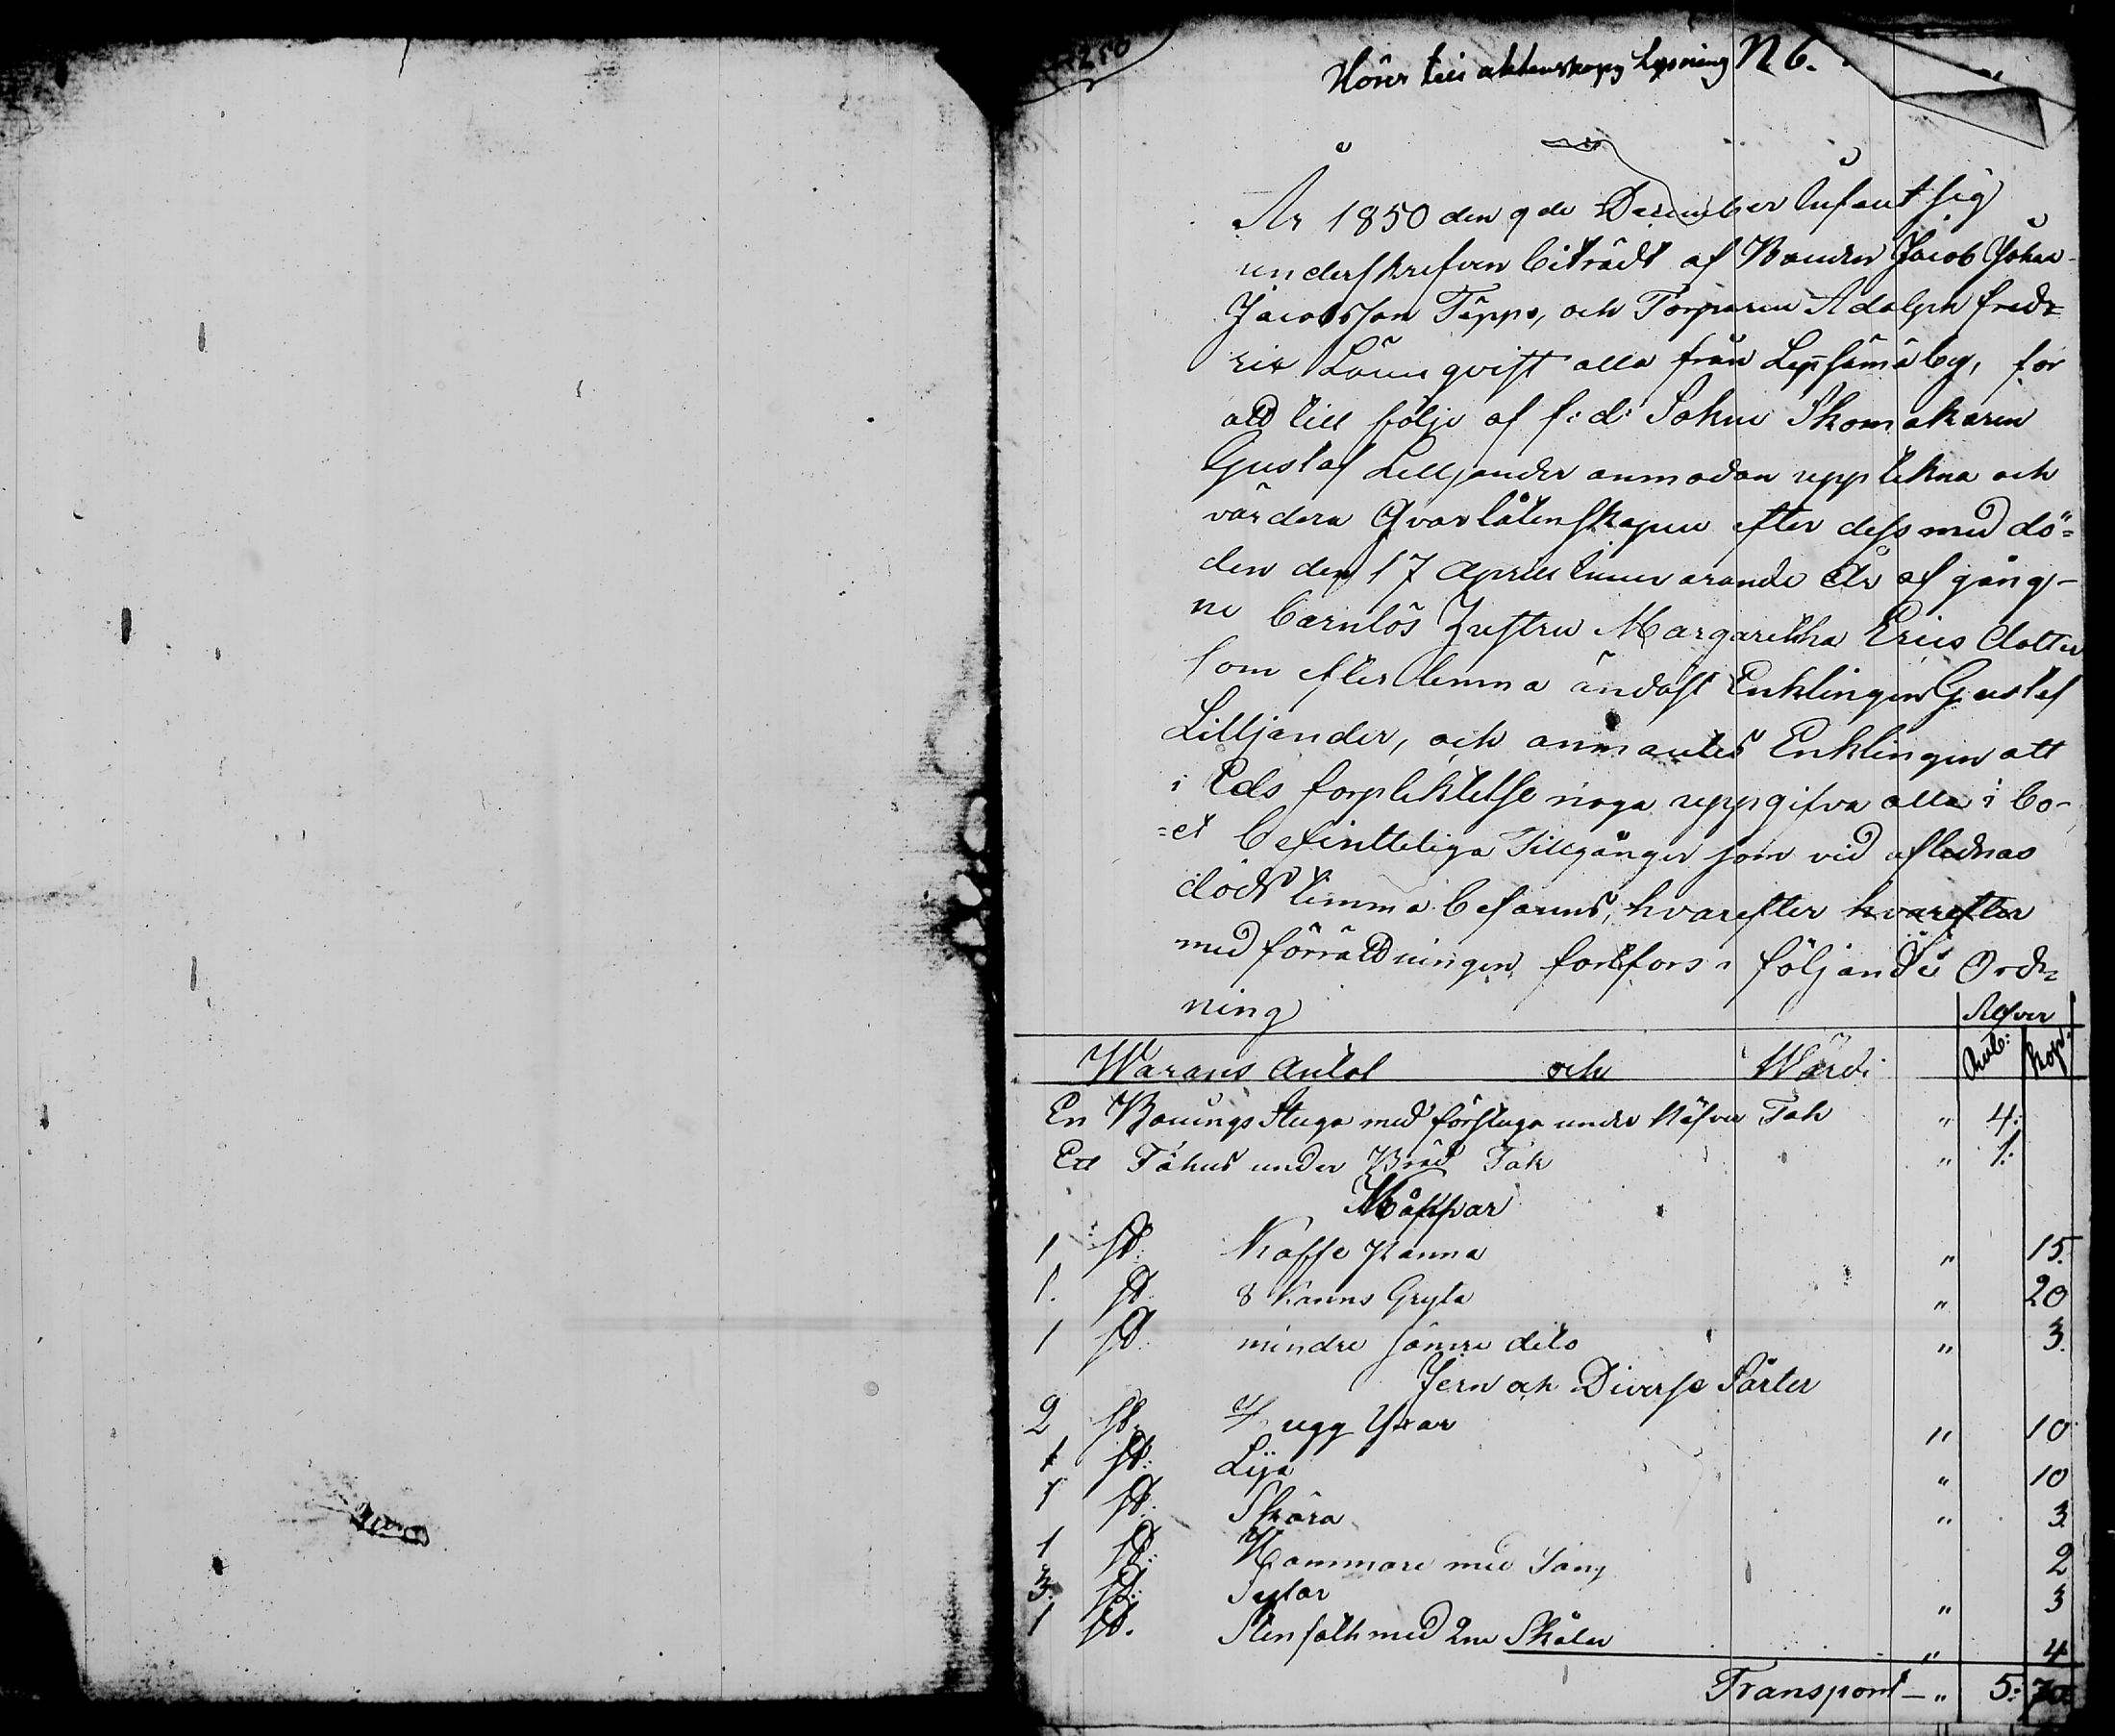 250
Hörer till aktenskaps Lysning N 6.
År 1850 den 9de December Infant sig
underskrifven biträdt af Bonden Jacob Johan
Jacobsson Töppo, och Torparen Adolph fred=
rik Lönnqvist alla från Lepsämä by, för
att till följe af f: d: Sokne Skomakaren
Gustaf Lilljander anmodan uppteckna och
värdera Qvarlåtenskapen efter dess med dö=
den den 17 April innevarande År afgång-
ne barnlös Hustru Margaretha Erics dotter
som efterlemna ändast Enklingen Gustaf
Lilljander, och anmantes Enklingen att
i Eds förpliktelse noga uppgifva alla i bo-
=et befintteliga Tillgånger som vid aflednas
döds timma befanns, hvarefter hvarefter
med förrättningen fortfors i följande Ord=
ning
Silfver
Warans Antal och Värde Rub: Kop:
En Boningsstuga med förstuga under Näfver Tak " 4:
Ett Fähus under Bräd Tak " 1:
Kåppar
1 st: Kaffe Kanna " 15.
1. st. 8 Kanns Gryta " 20
1 st. mindre sämre dito " 3.
Jern och Diverse Sårter
2 st. Hugg Yxar " 10
1 st: Lija " 10
1 st. Skära " 3
1 st: Hammare med Tång 2
3. st: Sylar " 3
1 st. Stenfalk med 2ne Skålar " 4
Transport — " 5: 70